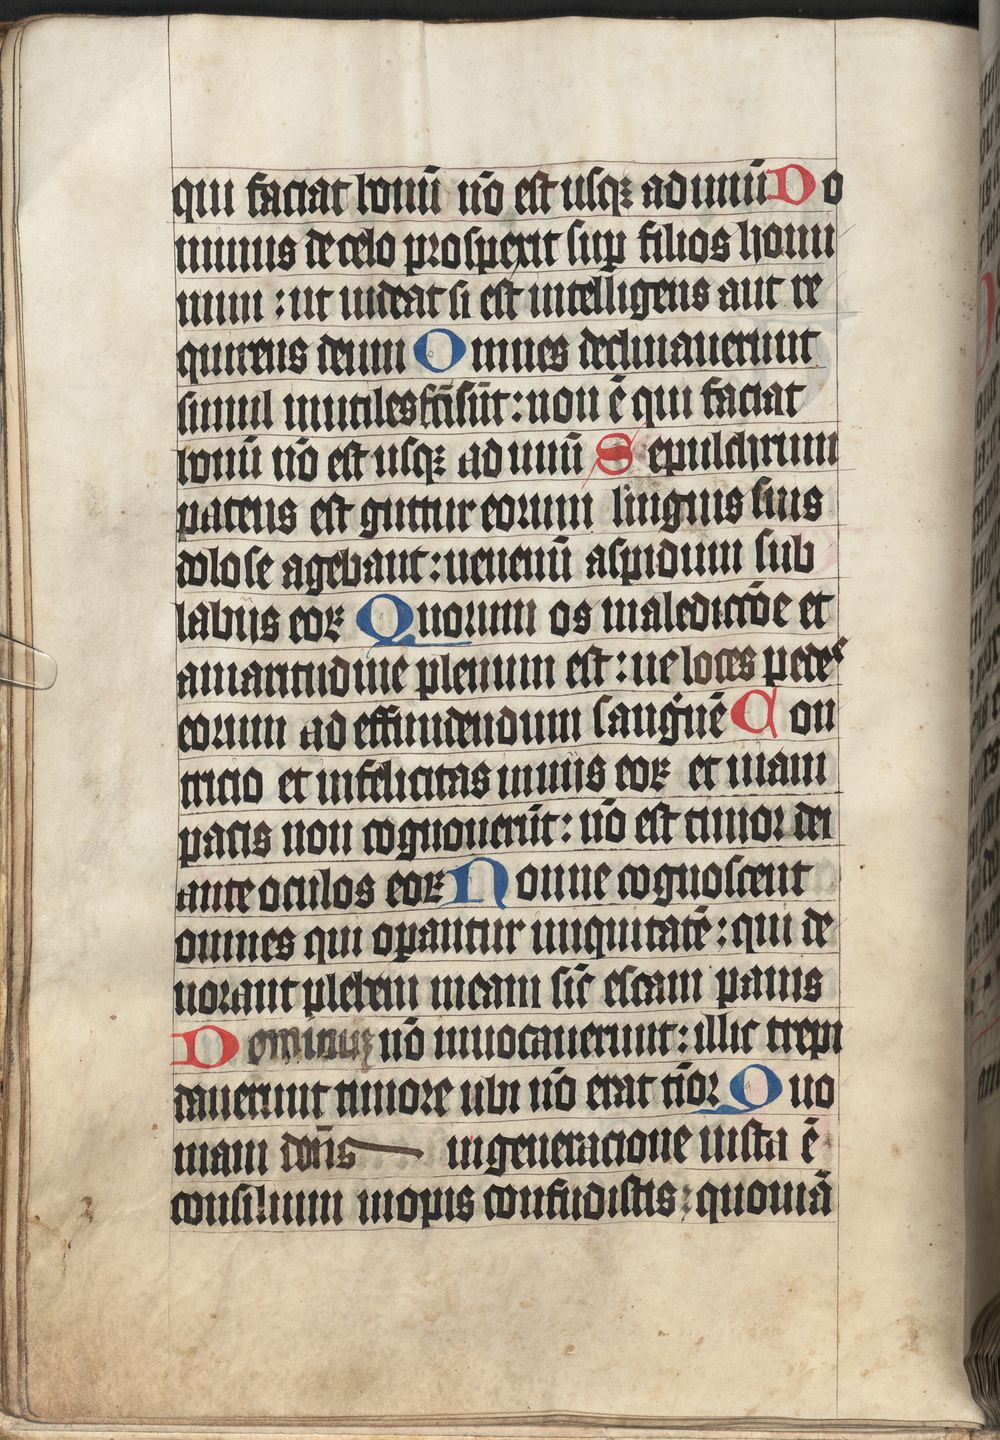 qui faciat bonū nō est usqꝫ ad unū Do
minus de celo prospexit suꝑ filios homi
num : ut uideat si est intelligens aut re
quirens deum Omnes declinauerunt
simul inutiles fc̄i sūt : non ē qui faciat
bonū nō est usqꝫ ad unū Sepulchrum
patens est guttur eorum linguis suis
dolose agebant : uenenū aspidum sub
labiis eoꝝ Quorum os maledicc̄ōe et
amaritudine plenum est : ueloces pedes
eorum ad effundendum sanguinē Con
tricio et infelicitas in uiis eoꝝ et uiam
pacis non cognouerūt : nō est timor dei
ante oculos eoꝝ Nonne cognoscent
omnes qui oꝑantur iniquitatē : qui de
uorant plebem meam sic̄ escam panis
Dominuꝫ nō inuocauerunt : illic trepi
dauerunt timore ubi nō erat tīor Quo
niam dn̄s in generacione iusta ē
consilium inopis confudistis : quoniā